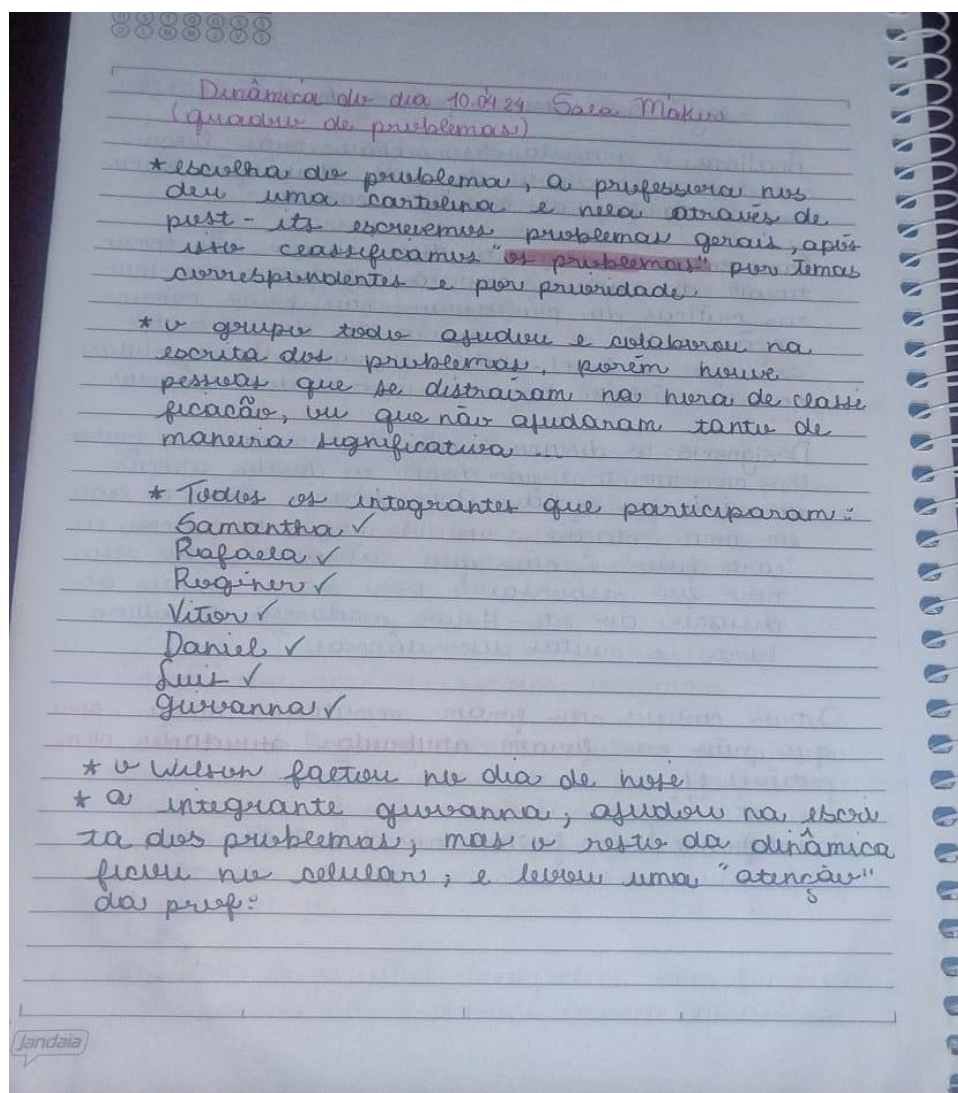 D S T Q Q S S
D L M M J V S
Dinâmica do dia 10.04.24 Sala Maker
(quadro de problemas)
* escolha do problema, a professora nos
deu uma cartolina e nela através de
post-its escrevemos problemas gerais, após
isso classificamos "os problemas" por temas
correspondentes e por prioridade.
* o grupo todo ajudou e colaborou na
escrita dos problemas, porém houve
pessoas que se distraíram na hora de classi
ficação, ou que não ajudaram tanto de
maneira significativa
* Todos os integrantes que participaram:
Samantha ✓
Rafaela ✓
Roginer ✓
Vitor ✓
Daniel ✓
Luis ✓
giovanna ✓
* o Wilson faltou no dia de hoje
* a integrante giovanna, ajudou na escri
ta dos problemas, mas o resto da dinâmica
ficou no celular, e levou uma "atenção"
da prof.
Jandaia